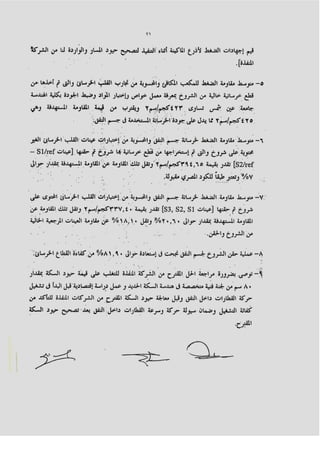 ٢١
قيم إجهادات الضغط لأذرع الماكينة أثناء التنفيذ لتصحيح حيود المسار والواردة لنا من الشركة
المنفذة].
٥- متوسط مقاومة الضغط للمكعب المكافئ والمحسوبة من تجارب القلب الخرسانى والتى تم أخذها من
قطع خرسانية خالية من الشروخ بمعرفة معمل خواص وإختبار المواد وضبط الجودة بكلية الهندسة
جامعة عين شمس تساوى ٤٢٣كجم/سم٢ ويقترب من قيمة المقاومة المستهدفة وهي
٤٢٥كجم/سم٢ مما يدل على جودة الخرسانة المستخدمة فى جسم النفق.
٦- متوسط مقاومة الضغط لخرسانة جسم النفق والمحسوبة من إختبارات عينات القلب الخرسانى الغير
محتوية على شروخ والتى تم إستخراجها من قطع خرسانية بها شروخ تم حقنها [عينات S1/ref –
S2/ref] تقدر بقيمة ٣٩٤,٦٥كجم/سم٢ وتقل تلك المقاومة عن المقاومة المستهدفة بمقدار حوالى
٧% وتعتبر طبقاً للكود المصري مقبولة.
٧- متوسط مقاومة الضغط لخرسانة جسم النفق والمحسوبة من إختبارات القلب الخرسانى المحتوى على
شروخ تم حقنها [عينات S3, S2, S1] تقدر بقيمة ٣٣٧,٤٠كجم/سم٢ وتقل تلك المقاومة عن
المقاومة المستهدفة بمقدار حوالى ٢٠,٦٠% وتقل ١٨,١٠% عن مقاومة العينات المرجعية الخالية
من الشروخ والحقن.
٨- عملية حقن الشروخ لجسم النفق نجحت فى إستعادة حوالى ٨١,٩٠% من كفاءة القطاع الخرسانى.
٩- نوصى بضرورة مراجعة الحل المقترح من الشركة المنفذة للتغلب على قيمة حيود السكة بمقدار
٨٠ سم من لجنة فنية متخصصة فى هندسة السكة الحديد و عمل دراسة إقتصادية قبل البدأ فى تشغيل
حركة القطارات داخل النفق وقبل معالجة حيود السكة المقترح من الشركات المنفذة للتأكد من
كفاءة التشغيل وضمان سيولة حركة وسرعة القطارات داخل النفق بعد تصحيح حيود السكة
المقترح.